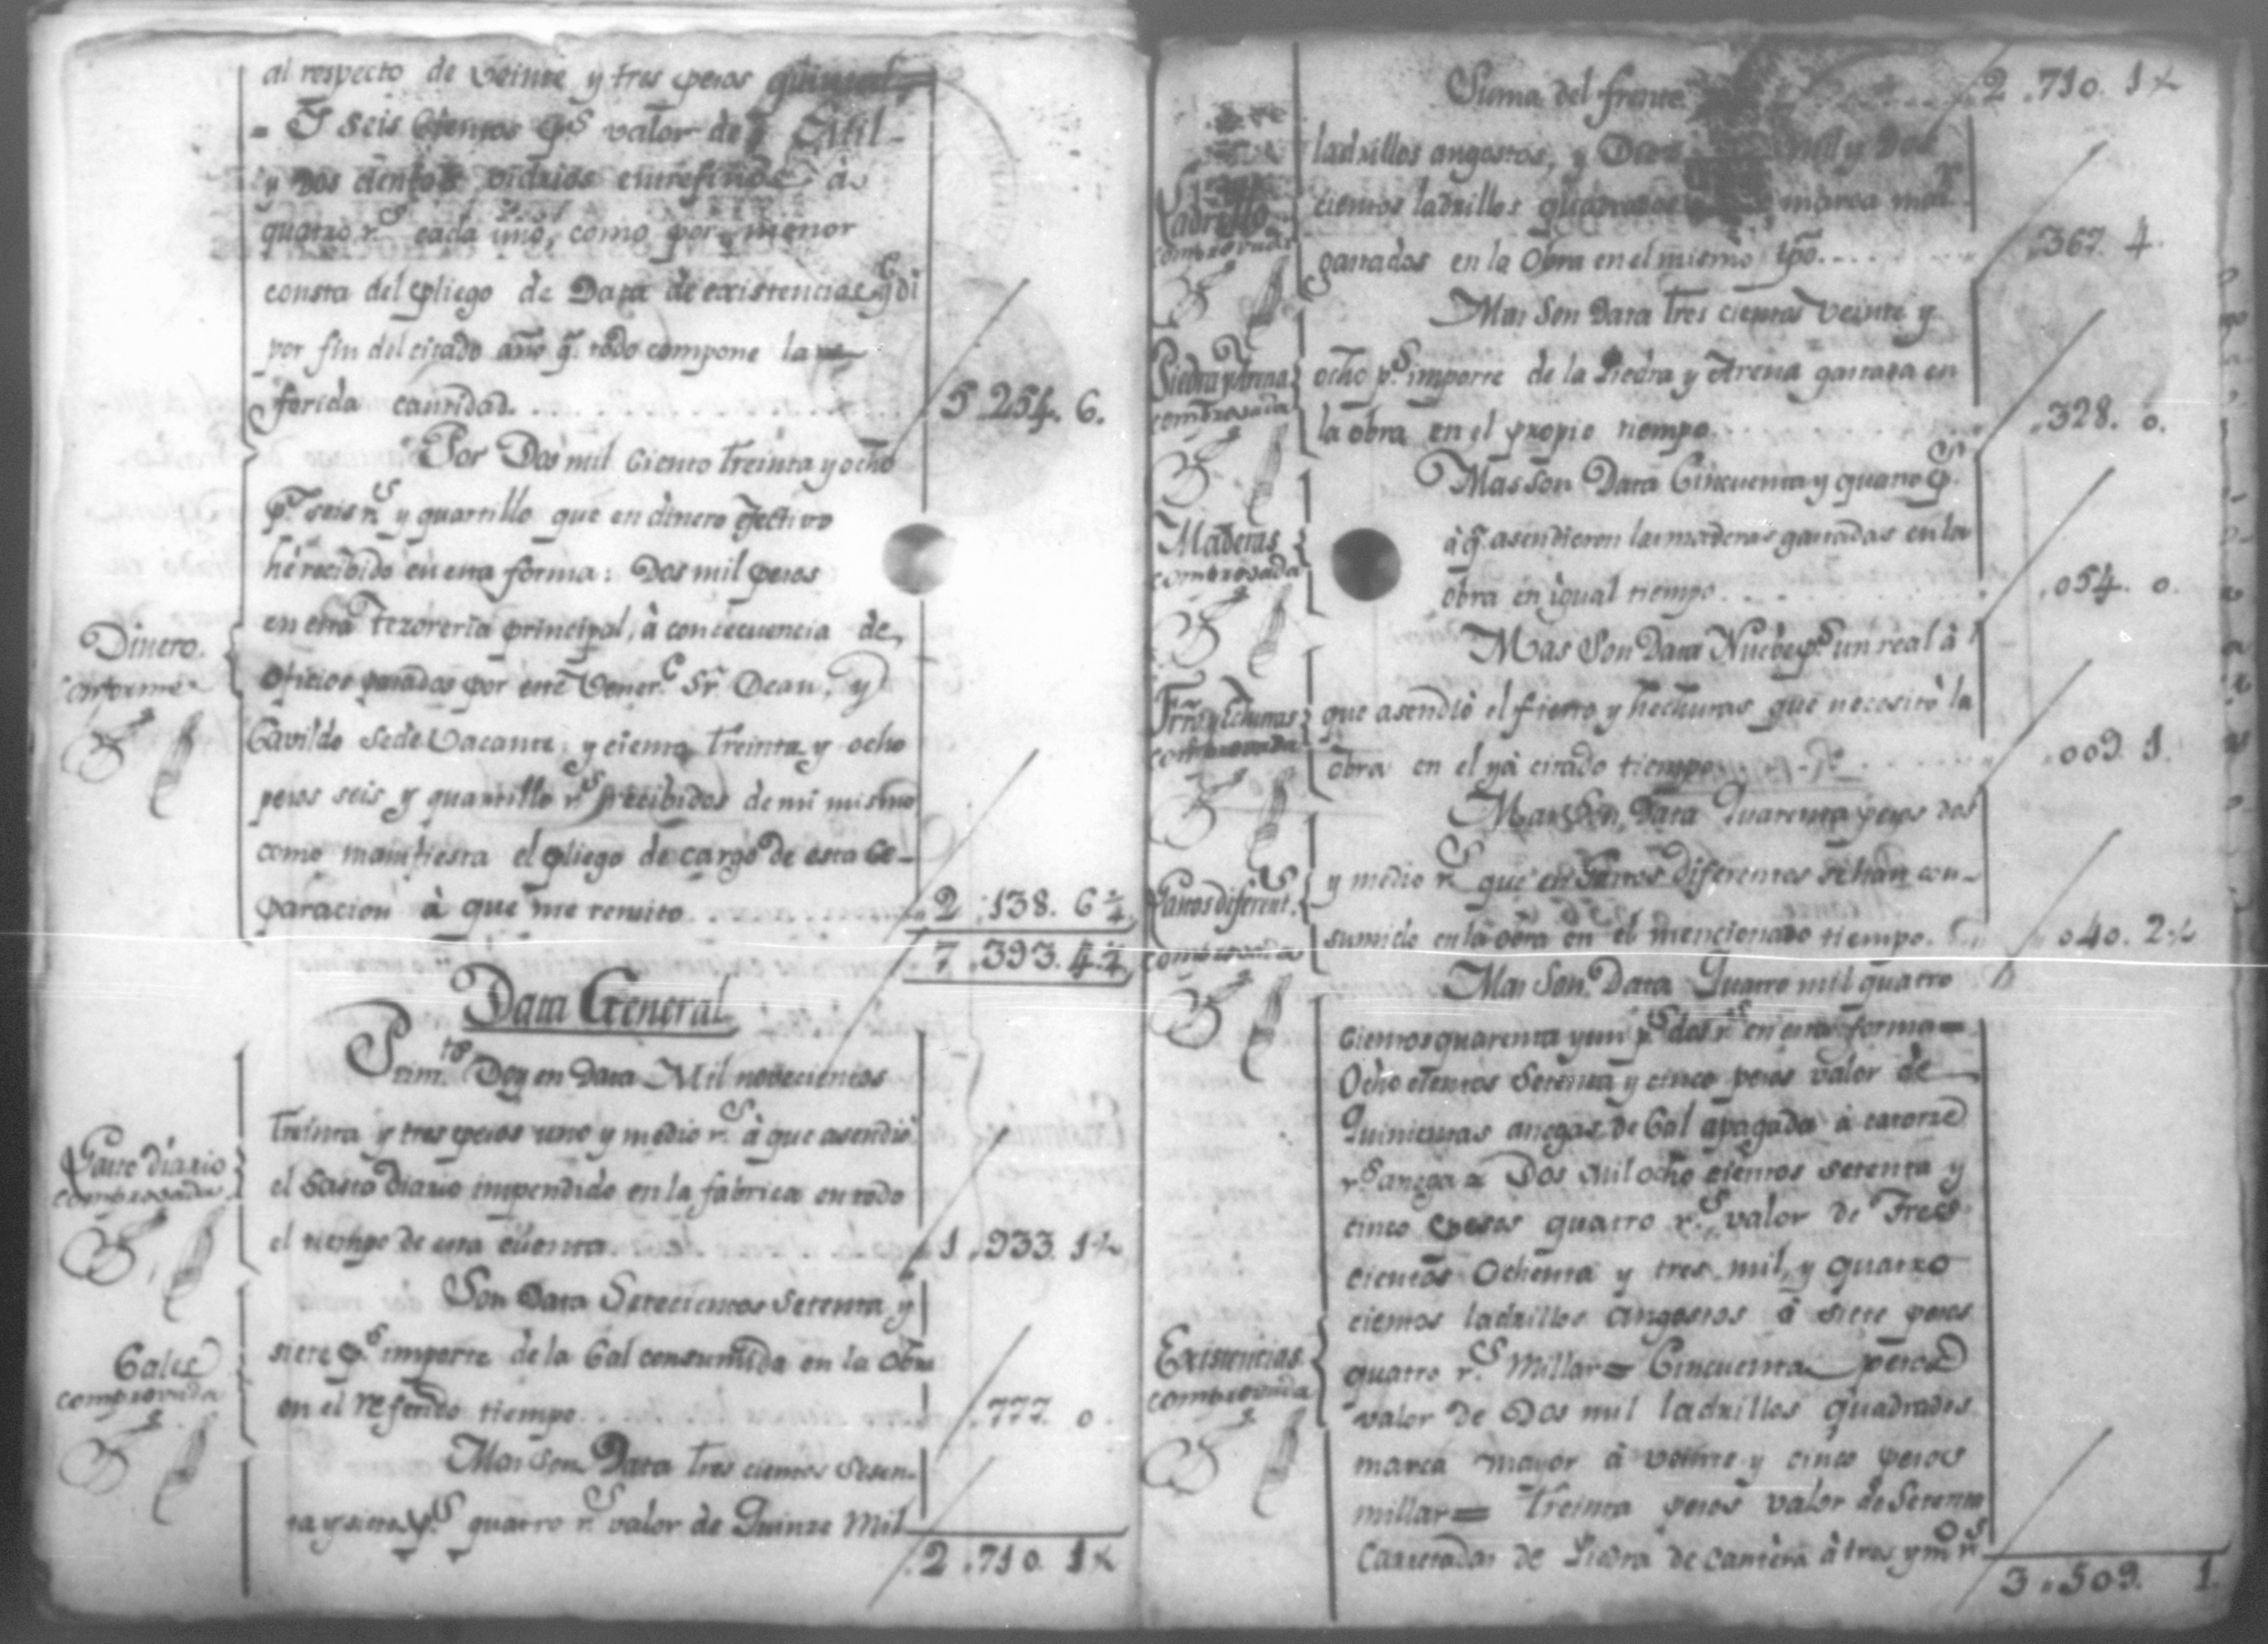 al respecto de veinte y tres pesos quintal =
= Y seis Cientos p.s valor de Mil
y dos cientos vidrios entrefinos à
quatro r.s cada uno, como por menor
consta del pliego de Data de existencias q.e di
por fin del citado año q.e todo compone la re-
ferida cantidad. 5.254. 6.
Por Dos mil Ciento treinta y ocho
p.s seis r.s y quartillo que en dinero efectivo
hè recibido en esta forma: Dos mil pesos
en esta Tezoreria principal, à consecuencia de
oficios pasados por este Vener.e Sr. Dean, y
Dinero.
conforme
Cavildo Sede Vacante, y ciento treinta y ocho
pesos seis y quartillo r.s recibidos de mi mismo
como manifiesta el pliego de cargo de esta Se-
paracion à que me remito. 2.138. 6¼
7.393. 4¼
Data General
Prim.te Doy en Data Mil novecientos
treinta y tres pesos uno y medio r.s à que asendiò
Gasto diario
comprovada
el Gasto Diario impendido en la fabrica en todo
el tiempo de esta cuenta. 1.933. 1½
Son Data Setecientos setenta y
siete p.s importe de la Cal consumida en la Obra
Cales
comprovada
en el referido tiempo .777. 0.
Mas son Data tres cientos sesen-
ta y siete p.s quatro r.s valor de Quinze Mil
2.710. 1½
Suma del frente 2.710. 1½
ladrillos angostos, y mil y dos
Ladrillo
comprovada
cientos ladrillos quadrados marca may.r
gastados en la Obra en el mismo tpo. .367. 4.
Mas Son Data tres cientos veinte y
Piedra y Arena
comprovada
ocho p.s importe de la Piedra y Arena gastada en
la obra en el propio tiempo .328. 0.
Mas son Data Cincuenta y quatro p.s
Maderas
comprovada
à q.e asendieron las maderas gastadas en la
obra en igual tiempo. .054. 0.
Mas Son Data Nuebe p.s un real à
comprovada
que asendiò el fierro y hechuras que necesitò la
obra en el yà citado tiempo. .009. 1.
Mas Son Data Quarenta pesos dos
Gastos diferent.s
comprovada
y medio r.s que en Gastos diferentes se han con-
sumido en la obra en el mencionado tiempo. .040. 2½
Mas Son Data Quatro mil quatro
cientos quarenta y un p.s dos r.s en esta forma =
Ocho cientos Setenta y cinco pesos valor de
Quinientas anegas de Cal apagada à catorze
r.s anega = Dos mil ocho cientos setenta y
cinco pesos quatro r.s valor de Tres
cientos Ochenta y tres mil, y quatro
cientos ladrillos angostos à siete pesos
Existencias
comprovada
quatro r.s Millar = Cincuenta pesos
valor de Dos mil ladrillos quadrados
marca mayor à veinte y cinco pesos
millar = treinta pesos valor de Setenta
Carretadas de Piedra de cantera à tres y m.o r.s
3.509. 1.